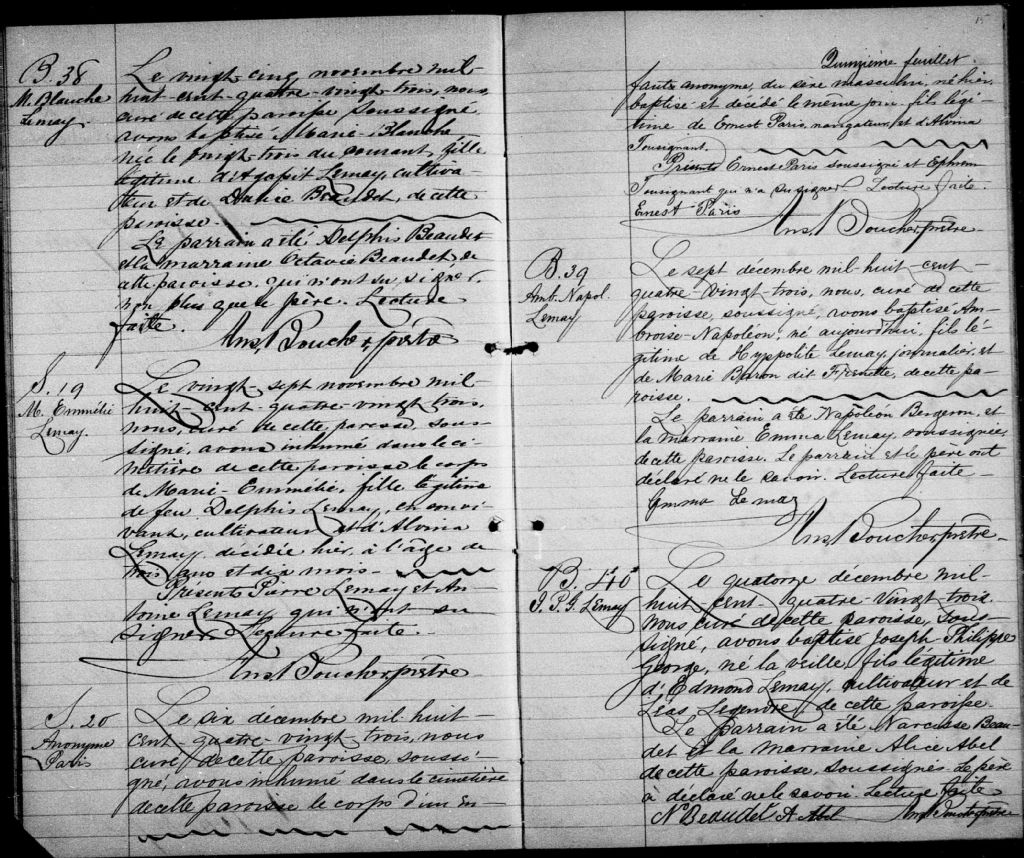 B. 38
M. Blanche
Lemay.
Le vingt-cinq novembre mil-
huit-cent-quatre-vingt trois, nous
curé de cette paroisse soussigné
avons baptisé Marie-Blanche
née le vingt-trois du courant, fille
légitime d'Agapit Lemay, cultiva-
teur et de Beaudet, de cette
paroisse.
Le parrain a été Delphis Beaudet
et la marraine Octavie Beaudet de
cette paroisse, qui n'ont su signer
non plus que le père. Lecture
faite.
Ans. Boucher, prêtre
S. 19
M. Emmélie
Lemay.
Le vingt-sept novembre mil-
huit-cent-quatre-vingt trois,
nous, curé de cette paroisse, sous-
signé, avons inhumé dans le ci-
metière de cette paroisse le corps
de Marie-Emmélie, fille légitime
de feu Delphis Lemay, en son vi-
vant, cultivateur et d'Alvina
Lemay, décédée hier, à l'âge de
trois ans et dix mois-
Présents Pierre Lemay et An-
toine Lemay qui n'ont su
signer Lecture faite.
Ans. Boucher, prêtre
S. 20
Anonyme
Paris
Le six décembre mil huit-
cent-quatre-vingt-trois, nous
curé de cette paroisse, soussi-
gné, avons inhumé dans le cimetière
de cette paroisse le corps d'un en-
15
Quinzième feuillet.
fant anonyme, du sexe masculin, né hier,
baptisé et décédé le même jour fils légi-
time de Ernest Paris, navigateur, et d'Alvina
Tousignant.
Présents Ernest Paris soussigné et Ephrem
Tousignant qui n'a su signer Lecture faite.
Ernest Paris
Ans. Boucher, prêtre-
B. 39
Amb. Napol.
Lemay
Le sept décembre mil-huit-cent-
quatre-vingt trois, nous, curé de cette
paroisse, soussigné, avons baptisé Am-
broise-Napoléon, né aujourd'hui, fils lé-
gitime de Hyppolite Lemay, journalier, et
de Marie Baron dit Frenette, de cette pa-
roisse.
Le parrain a été Napoléon Bergeron, et
la marraine Emma Lemay, soussignée,
de cette paroisse. Le parrain et le père ont
déclaré ne le savoir. Lecture faite-
Emma Lemay
Ans. Boucher, prêtre-
B. 40
J. P. G. Lemay
Le quatorze décembre mil-
huit cent-quatre-vingt trois
nous curé de cette paroisse, sous-
signé, avons baptisé Joseph Philippe
George, né la veille, fils légitime
d'Edmond Lemay, cultivateur et de
Léas Legendre, de cette paroisse.
Le parrain a été Narcisse Beau-
det et la marraine Alice Abel
de cette paroisse, soussignés. Le père
a déclaré ne le savoir. Lecture faite
N Beaudet A Abel
Ans. Boucher prêtre